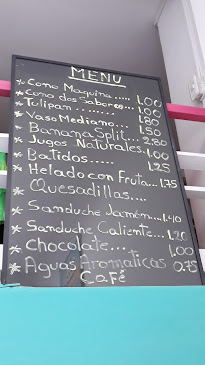 MENU
* Cono Maquina..... 1.00
* Cono dos Sabores... 1.00
* Tulipan........ 1.80
* Vaso Mediano... 1.50
* Banana Split... 2.80
* Jugos Naturales. 1.00
* Batidos...... 1.25
* Helado con Fruta.. 1.75
* Quesadillas....
* Sanduche Jamón.... 1.40
* Sanduche Caliente... 1.20
* Chocolate... 1.00
* Aguas Aromaticas 0.75
Café